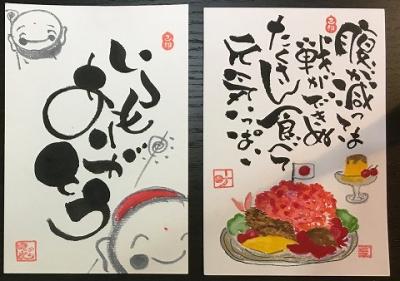 いつも
ありがとう
腹が減っては
戦ができぬ
たくさん食べて
元気いっぱい